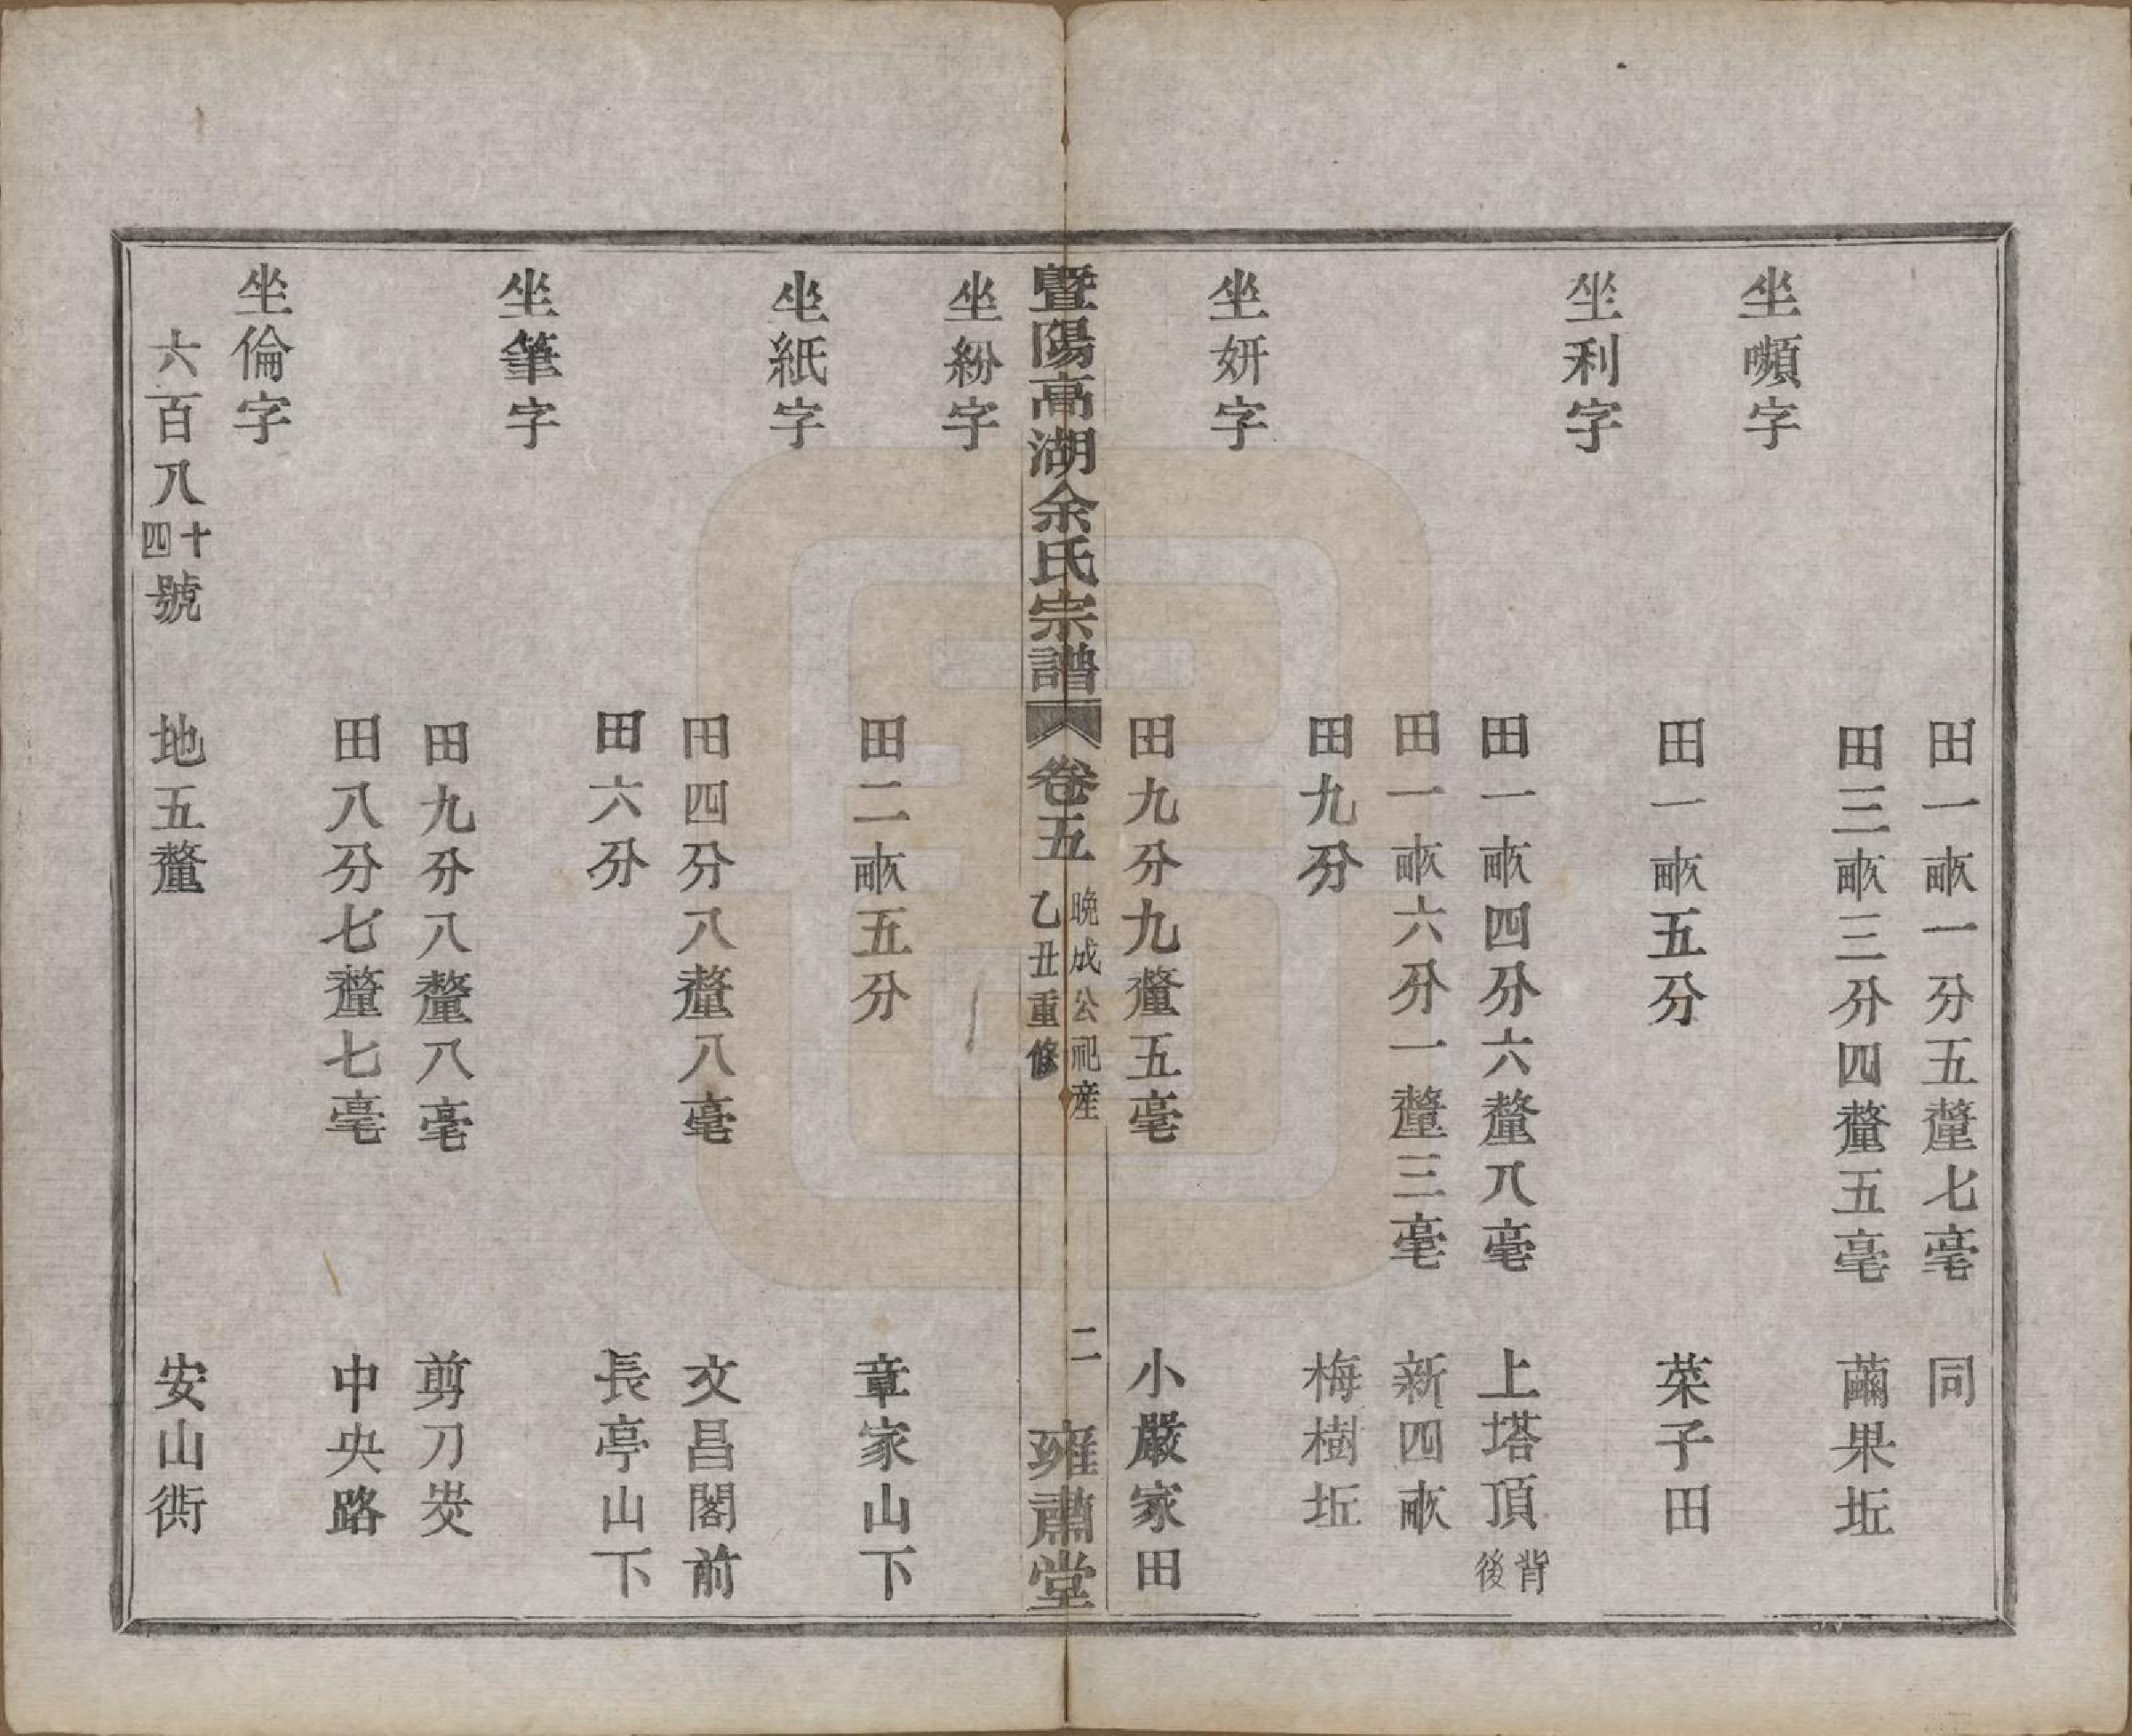 田一畝一分五釐七毫 同
田三畝三分四釐五毫 繭果坵
坐嚬字
田一畝五分 菜子田
坐利字
田一畝四分六釐八毫 上塔頂背後
田一畝六分一釐三毫 新四畝
田九分 梅樹坵
坐妍字
田九分九釐五毫 小嚴家田
暨陽高湖余氏宗譜 卷五 晚成公祀產 乙丑重修 二 雍肅堂
坐紛字
田二畝五分 章家山下
坐紙字
田四分八釐八毫 文昌閣前
田六分 長亭山下
坐筆字
田九分八釐八毫 剪刀㘭
田八分七釐七毫 中央路
坐倫字
六百八十四號 地五釐 安山衖